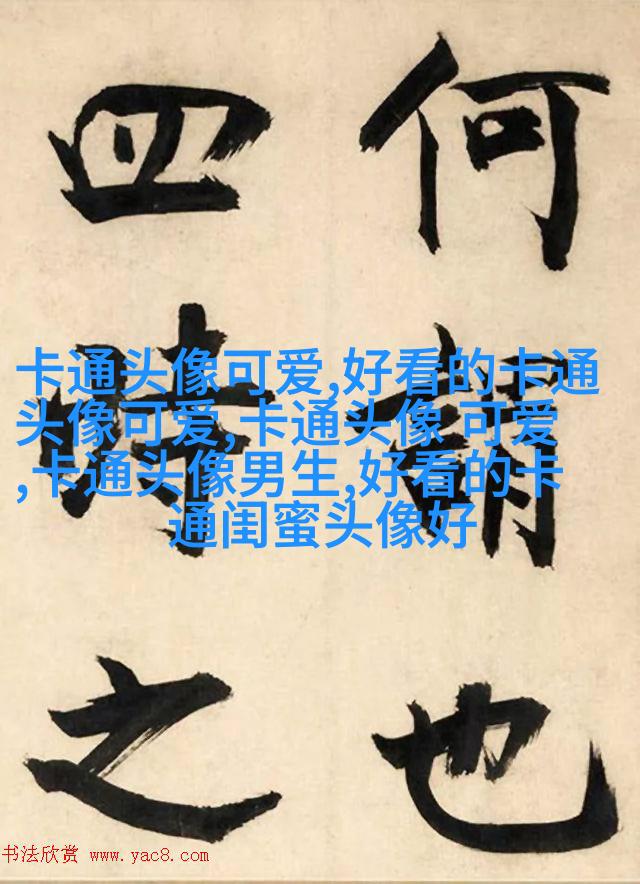 何謂也
四時之
卡通头像可爱,好看的卡通
头像可爱,卡通头像 可爱
,卡通头像男生,好看的卡
通闺蜜头像好
书法欣赏 www.yac8.com